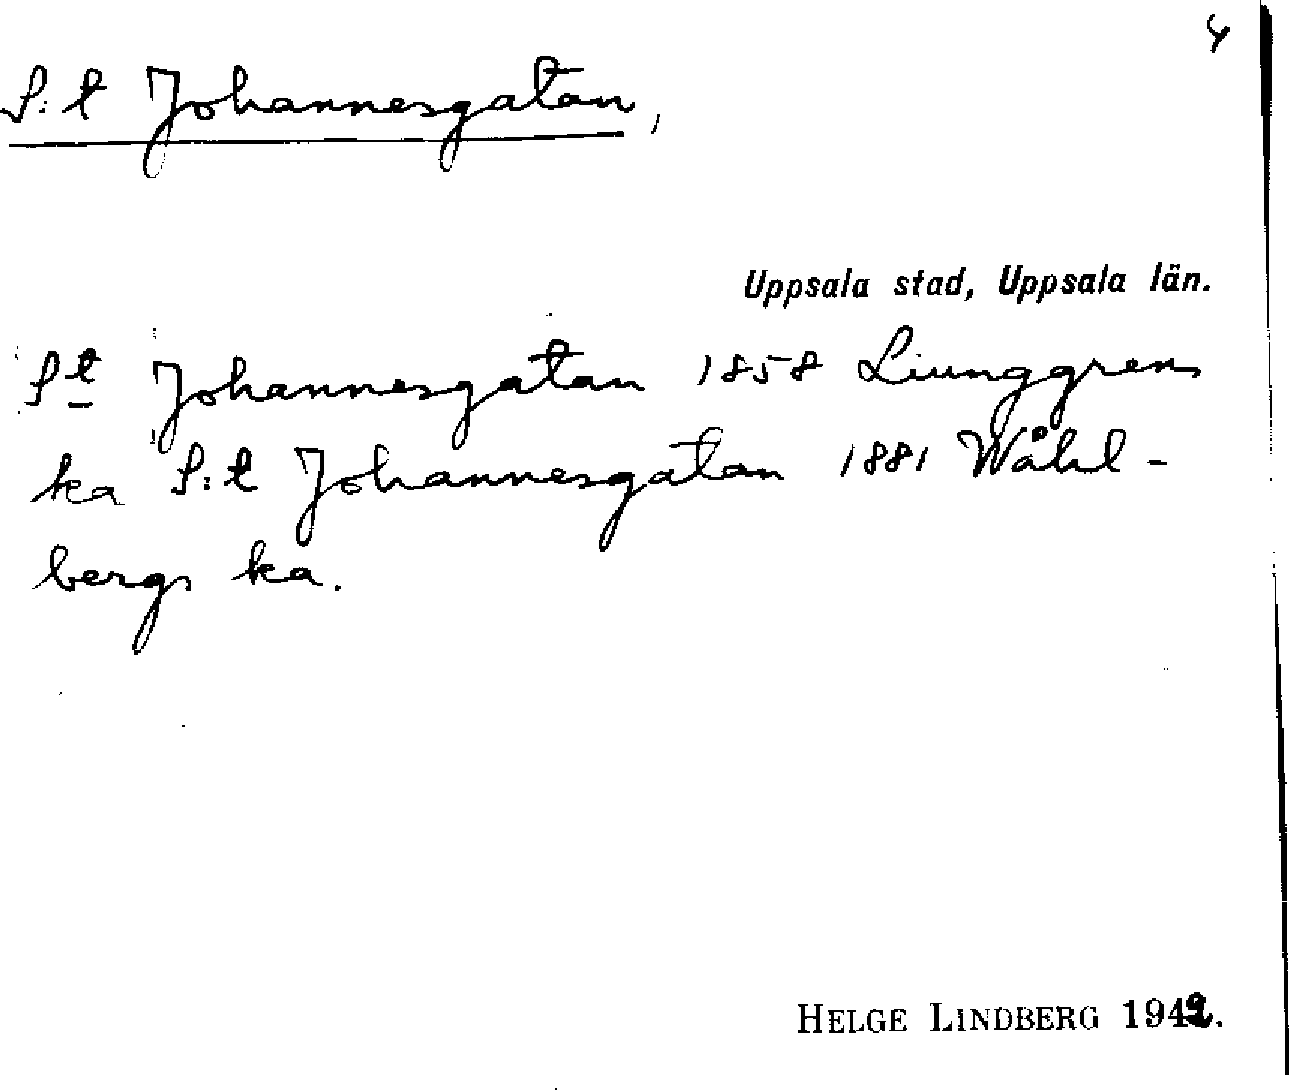 4
S:t Johannesgatan,
Uppsala stad, Uppsala län.
St Johannesgatan 1858 Liunggrens
ka S:t Johannesgatan 1881 Wåhl-
bergs ka.
HELGE LINDBERG 1942.